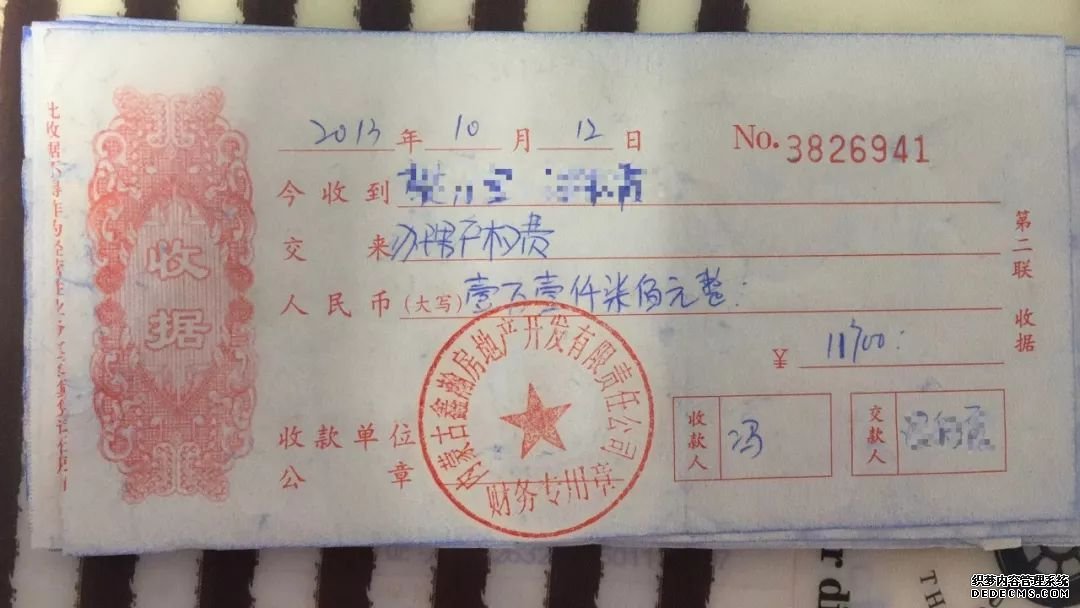 收据
2013年10月12日
No. 3826941
今收到
交来办理产权费
人民币(大写)壹万壹仟柒佰元整:
¥11700:
收款单位公章
内蒙古鑫瀚房地产开发有限责任公司
财务专用章
收款人 冯
交款人
第二联 收据
TH
织梦内容管理系统
DEDECMS.COM